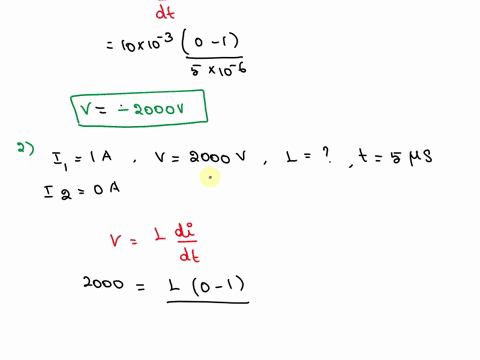 dt
= 10 × 10⁻³ (0 - 1)
5 × 10⁻⁶
V = -2000V
2) I₁ = 1 A , V = 2000 V , L = ? , t = 5 μs
I2 = 0 A
V = L di
dt
2000 = L (0 - 1)